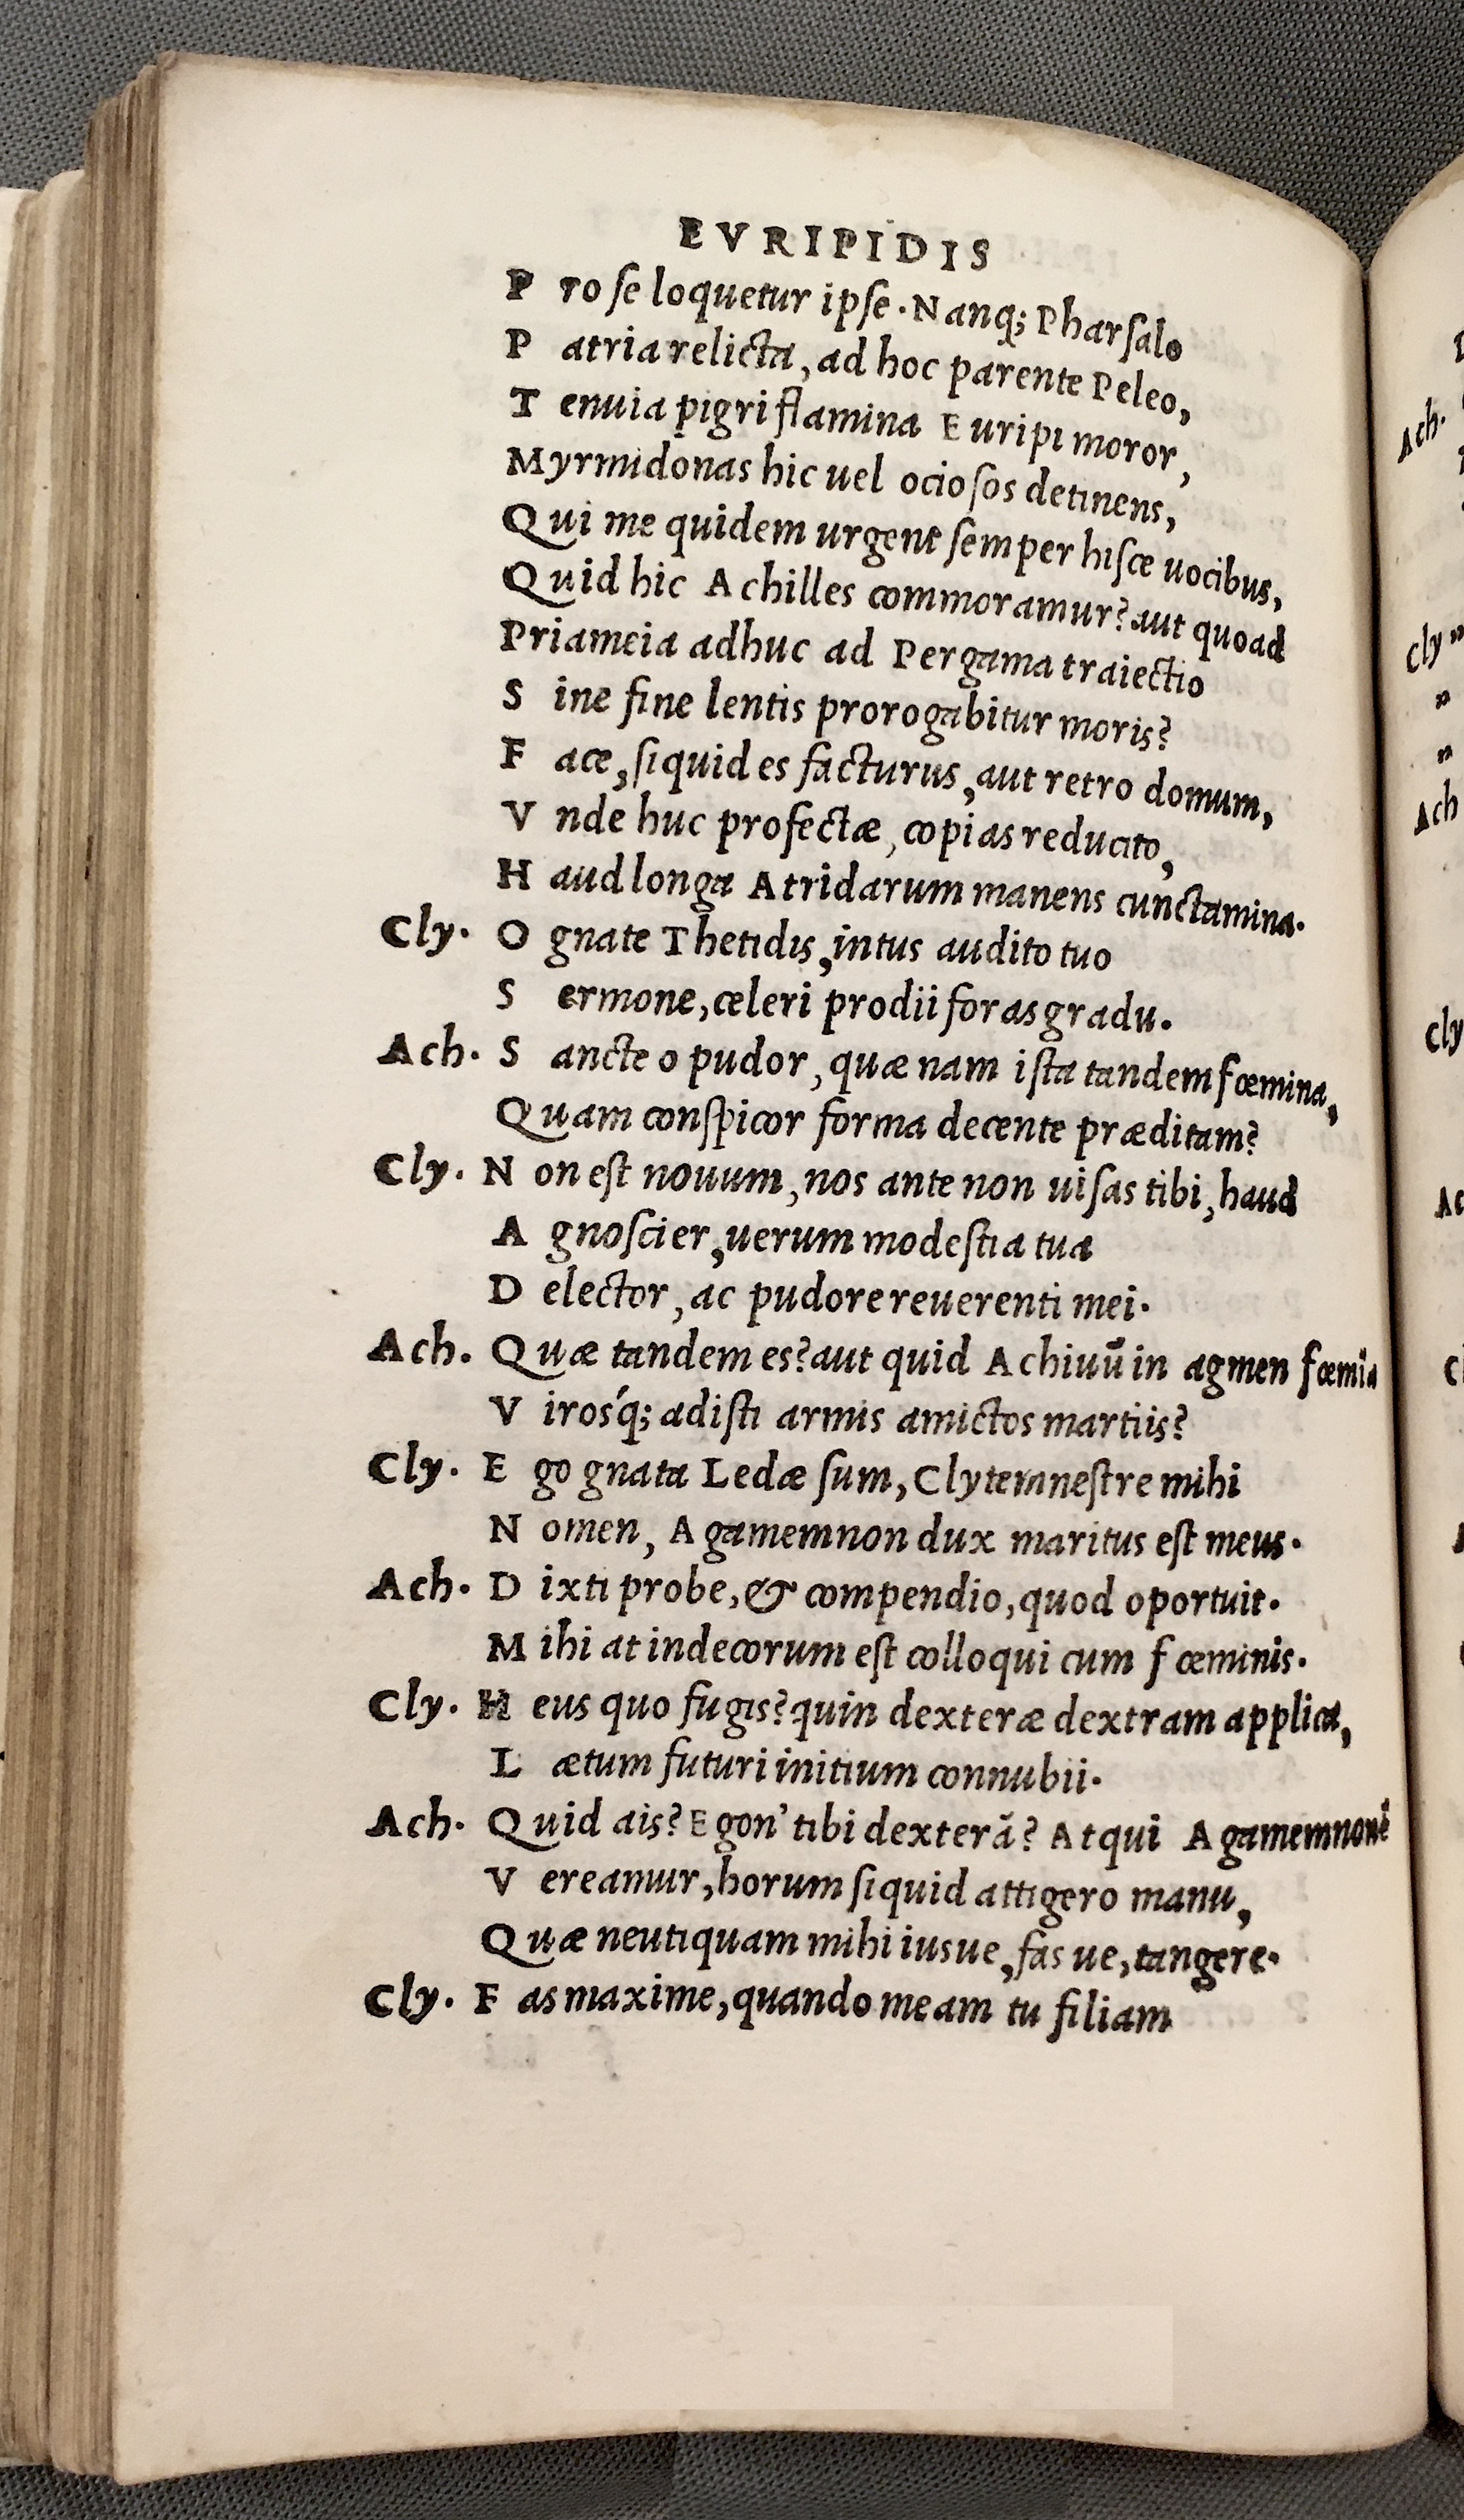 EVRIPIDIS
P ro se loquetur ipse. Nanq; Pharsalo
P atria relicta, ad hoc parente Peleo,
T enuia pigri flamina Euripi moror,
Myrmidonas hic uel ociosos detinens,
Qui me quidem urgent semper hisce uocibus,
Quid hic Achilles commoramur? aut quoad
Priameia adhuc ad Pergama traiectio
S ine fine lentis prorogabitur moris?
F ace, siquid es facturus, aut retro domum,
V nde huc profectæ, copias reducito,
H aud longa Atridarum manens cunctamina.
Cly. O gnate Thetidis, intus audito tuo
S ermone, celeri prodii foras gradu.
Ach. S ancte o pudor, quæ nam ista tandem fœmina,
Quam conspicor forma decente præditam?
Cly. N on est nouum, nos ante non uisas tibi, haud
A gnoscier, uerum modestia tua
D elector, ac pudore reuerenti mei.
Ach. Quæ tandem es? aut quid Achiuū in agmen fœmīa
V iros'q; adisti armis amictos martiis?
Cly. E go gnata Ledæ sum, Clytemnestre mihi
N omen, Agamemnon dux maritus est meus.
Ach. D ixti probe, & compendio, quod oportuit.
M ihi at indecorum est colloqui cum fœminis.
Cly. H eus quo fugis? quin dexteræ dextram applica,
L ætum futuri initium connubii.
Ach. Quid ais? Egon' tibi dexterā? Atqui Agamemnonē
V ereamur, horum siquid attigero manu,
Quæ neutiquam mihi ius ue, fas ue, tangere.
Cly. F as maxime, quando meam tu filiam
Ach.
Cly "
"
"
Ach
Cly